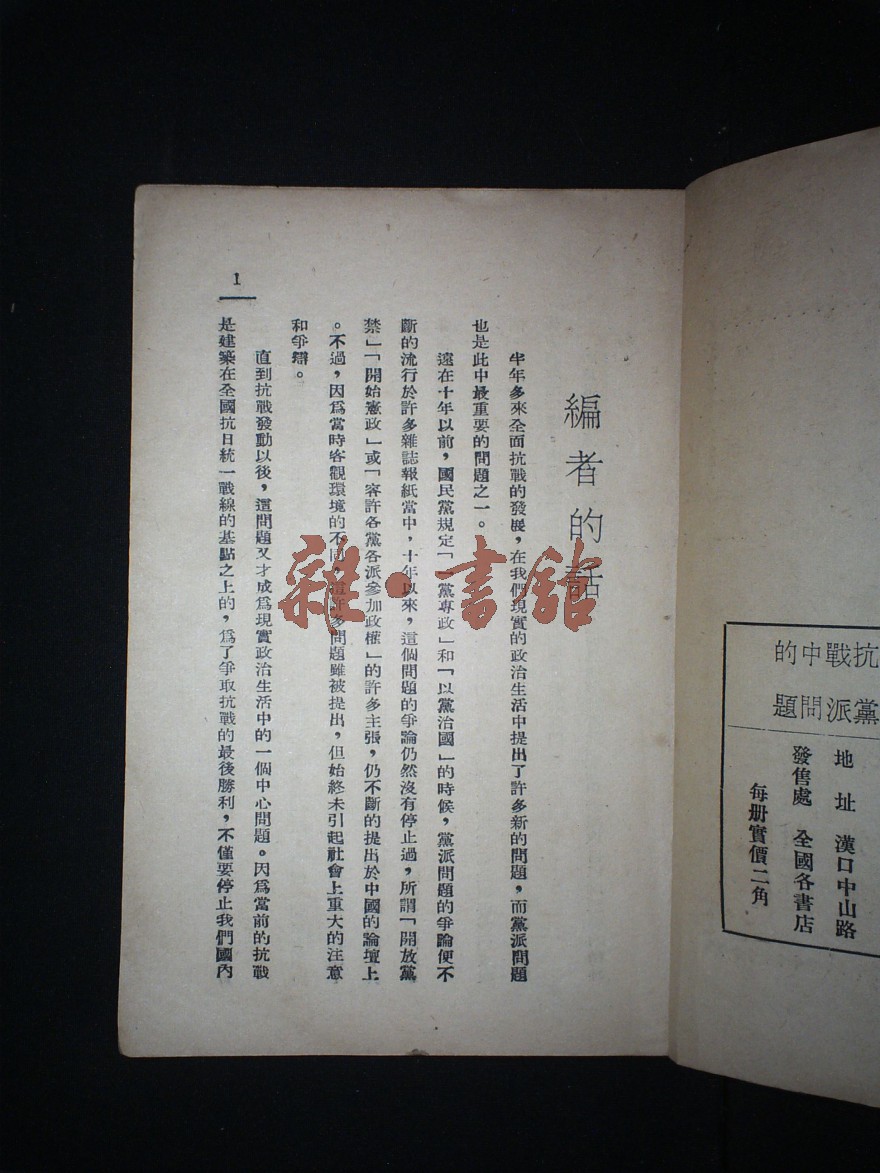 抗戰中的
黨派問題
地址 漢口中山路
發售處 全國各書店
每册實價二角
編者的話
半年多來全面抗戰的發展，在我們現實的政治生活中提出了許多新的問題，而黨派問題
也是此中最重要的問題之一。
遠在十年以前，國民黨規定「一黨專政」和「以黨治國」的時候，黨派問題的爭論便不
斷的流行於許多雜誌報紙當中，十年以來，這個問題的爭論仍然沒有停止過，所謂「開放黨
禁」「開始憲政」或「容許各黨各派參加政權」的許多主張，仍不斷的提出於中國的論壇上
。不過，因爲當時客觀環境的不同，這許多問題雖被提出，但始終未引起社會上重大的注意
和爭辯。
直到抗戰發動以後，這問題又才成爲現實政治生活中的一個中心問題。因爲當前的抗戰
是建築在全國抗日統一戰線的基點之上的，爲了爭取抗戰的最後勝利，不僅要停止我們國內
1
雜·書館